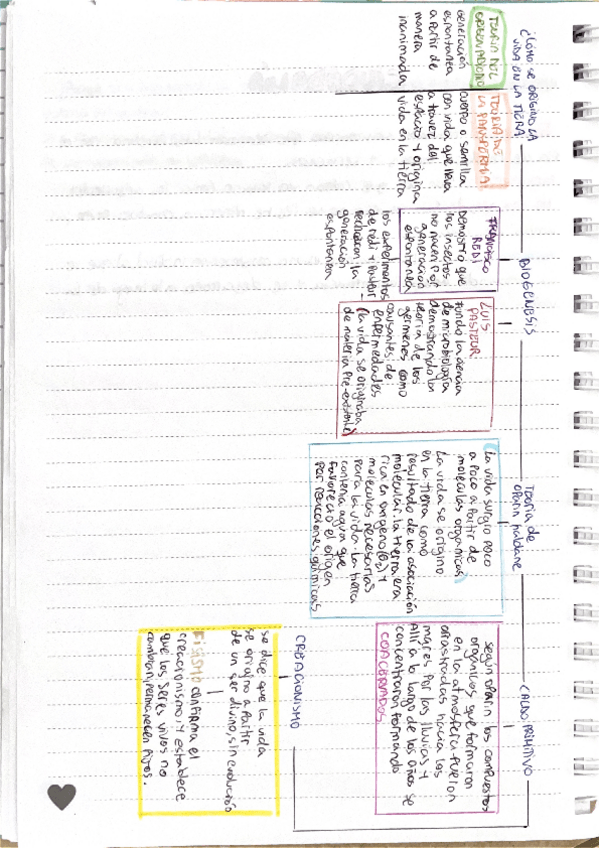 ¿CÓMO SE ORIGINO LA
VIDA EN LA TIERRA
TEORIA DEL
generación
espontanea
a partir de
manera
inanimada
TEORIA DE
LA PANSPERMIA
cuerpo o semilla
con vida que lleva
a travez del
espacio y origina
vida en la tierra
BIOGENESIS
FRANCISCO
REDI
Demostró que
los insectos
no nacen por
generación
espontanea
los experimentos
de redi y Pasteur
rechazan la
generación
espontanea
LUIS
PASTEUR
Fundo la ciencia
de microbiología
demostrando la
teoría de los
germenes como
causantes de
enfermedades
(la vida se originaba
de materia Pre-existente)
Teoría de
oparin haldane
La vida surgio poco
a Poco a Partir de
moleculas organicas
La vida se origino
en la tierra como
resultado de la asociación
molecular. la tierra era
rica en oxigeno (O₂) y
moleculas necesarias
para la vida. la tierra
contenia agua que
favorecio el origen
por reacciones químicas
CALDO PRIMITIVO
según oparin los compuestos
organicos que formaron
en la atmosfera fueron
arrastradas hacia los
mares por las lluvias y
Alli a lo largo de los años se
concentraron formando
COACERVADOS
CREACIONISMO
se dice que la vida
se origino a partir
de un ser divino, sin evolución
FIJISMO confirma el
creacionismo y establece
que los seres vivos no
cambian, permanecen fijos.